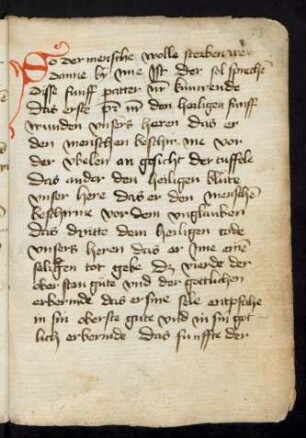 So der mensche wolle sterben wer
danne by ime ist der sol sprechen
disse funff patter nr kniuwende
das erste pr nr den heiligen funff
wunden unsers heren das er
den menschen beschir me vor
der ubelen an gesicht der tuffele
das ander den heiligen blute
unser here das er den menschen
beschirme vor dem unglauben
das dritte dem heiligen tode
unsers heren das er ime einen
seligen tot gebe dz vierde der
oberstan gute und der gotlichen
erbermde das er sine sele entpfahe
in sin oberste gute und in sin got
lich erbermde das funffte der